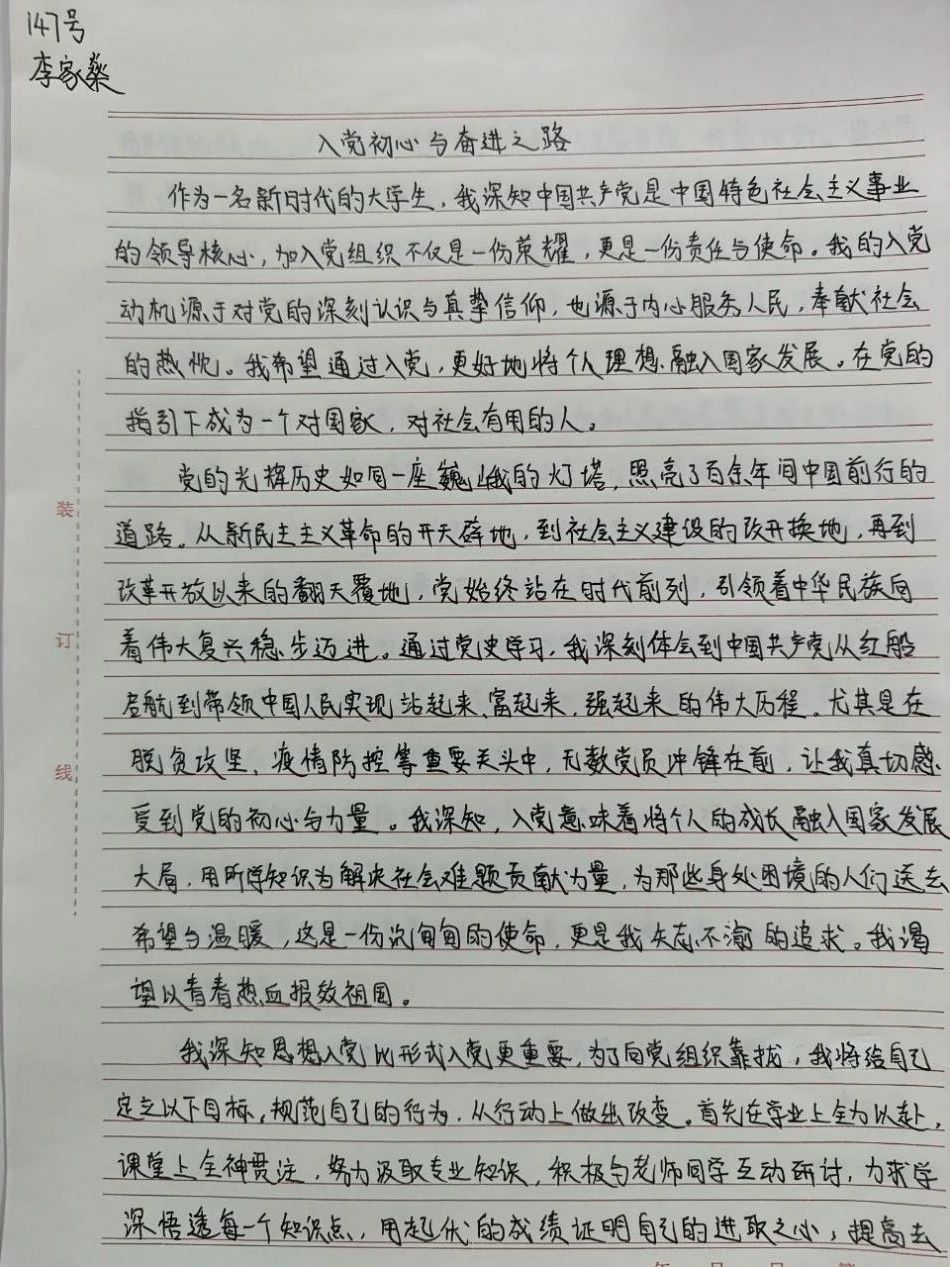 147号
李家燊
入党初心与奋进之路
作为一名新时代的大学生，我深知中国共产党是中国特色社会主义事业
的领导核心，加入党组织不仅是一份荣耀，更是一份责任与使命。我的入党
动机源于对党的深刻认识与真挚信仰，也源于内心服务人民，奉献社会
的热忱。我希望通过入党，更好地将个人理想融入国家发展。在党的
指引下成为一个对国家，对社会有用的人。
党的光辉历史如同一座巍峨的灯塔，照亮了百余年间中国前行的
道路。从新民主主义革命的开天辟地，到社会主义建设的改开换地，再到
改革开放以来的翻天覆地，党始终站在时代前列，引领着中华民族向
着伟大复兴稳步迈进。通过党史学习，我深刻体会到中国共产党从红船
启航到带领中国人民实现站起来、富起来、强起来的伟大历程。尤其是在
脱贫攻坚、疫情防控等重要关头中，无数党员冲锋在前，让我真切感
受到党的初心与力量。我深知，入党意味着将个人的成长融入国家发展
大局，用所学知识为解决社会难题贡献力量，为那些身处困境的人们送去
希望与温暖，这是一份沉甸甸的使命，更是我矢志不渝的追求。我渴
望以青春热血报效祖国。
我深知思想入党比形式入党更重要，为了向党组织靠拢，我将给自己
定立以下目标，规范自己的行为，从行动上做出改变。首先在学业上全力以赴，
课堂上全神贯注，努力汲取专业知识，积极与老师同学互动研讨，力求学
深悟透每一个知识点，用起伏的成绩证明自己的进取之心，提高去
装
订
线